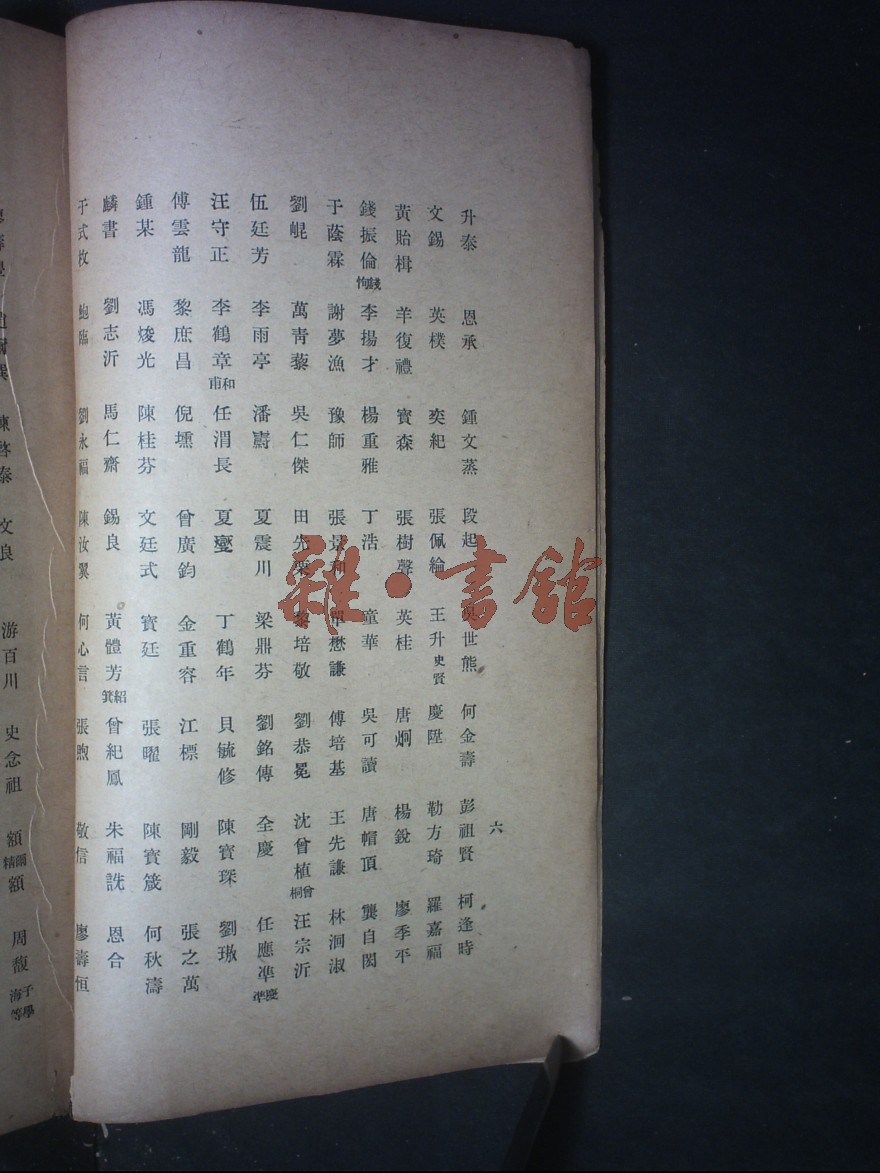 六
升泰 恩承 鍾文蒸 段起 世熊 何金壽 彭祖賢 柯逢時
文錫 英樸 奕紀 張佩綸 王升史賢 慶陞 勒方琦 羅嘉福
黃貽楫 羊復禮 寶森 張樹聲 英桂 唐炯 楊銳 廖季平
錢振倫錢恂 李揚才 楊重雅 丁浩 童華 吳可讀 唐帽頂 龔自閎
于蔭霖 謝夢漁 豫師 張景和 單懋謙 傅培基 王先謙 林洄淑
劉崐 萬青藜 吳仁傑 田先 黎培敬 劉恭冕 沈曾植曾桐 汪宗沂
伍廷芳 李雨亭 潘霨 夏震川 梁鼎芬 劉銘傳 全慶 任應準慶準
汪守正 李鶴章和甫 任渭長 夏燮 丁鶴年 貝毓修 陳寶琛 劉璈
傅雲龍 黎庶昌 倪壎 曾廣鈞 金重容 江標 剛毅 張之萬
鍾某 馮焌光 陳桂芬 文廷式 寶廷 張曜 陳寶箴 何秋濤
麟書 劉志沂 馬仁齋 錫良 黃體芳紹箕 曾紀鳳 朱福詵 恩合
于式枚 鮑臨 劉永福 陳汝翼 何心言 張煦 敬信 廖壽恒
陳啓泰 文良 游百川 史念祖 額爾精額 周馥子學海等
雜·書館